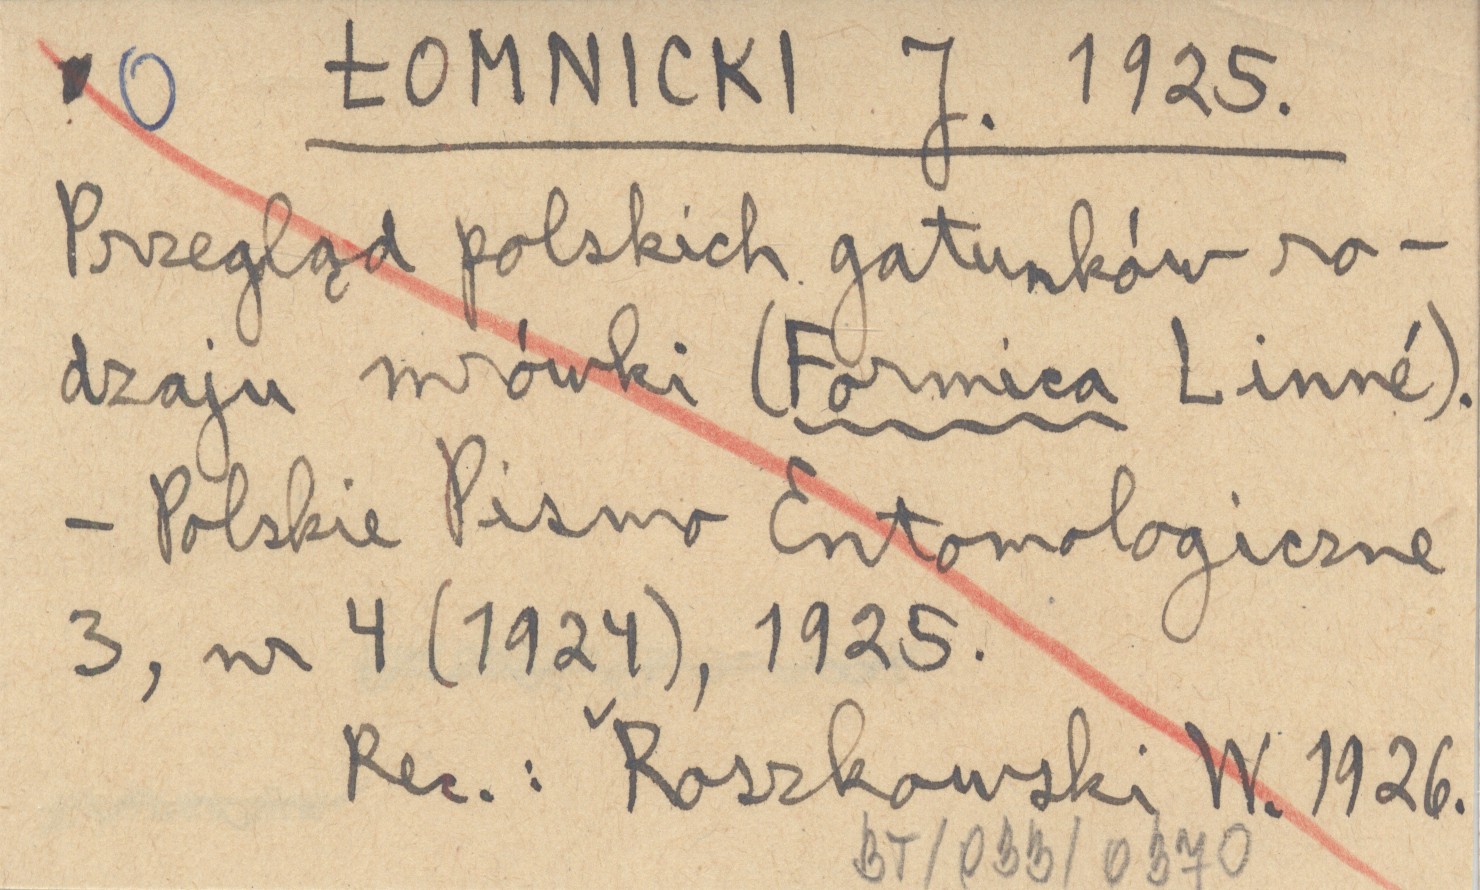 O ŁOMNICKI J. 1925.
Przegląd polskich gatunków ro-
dzaju mrówki (Formica Linné).
- Polskie Pismo Entomologiczne
3, nr 4 (1924), 1925.
Rec.: Roszkowski W. 1926.
BT/033/0370